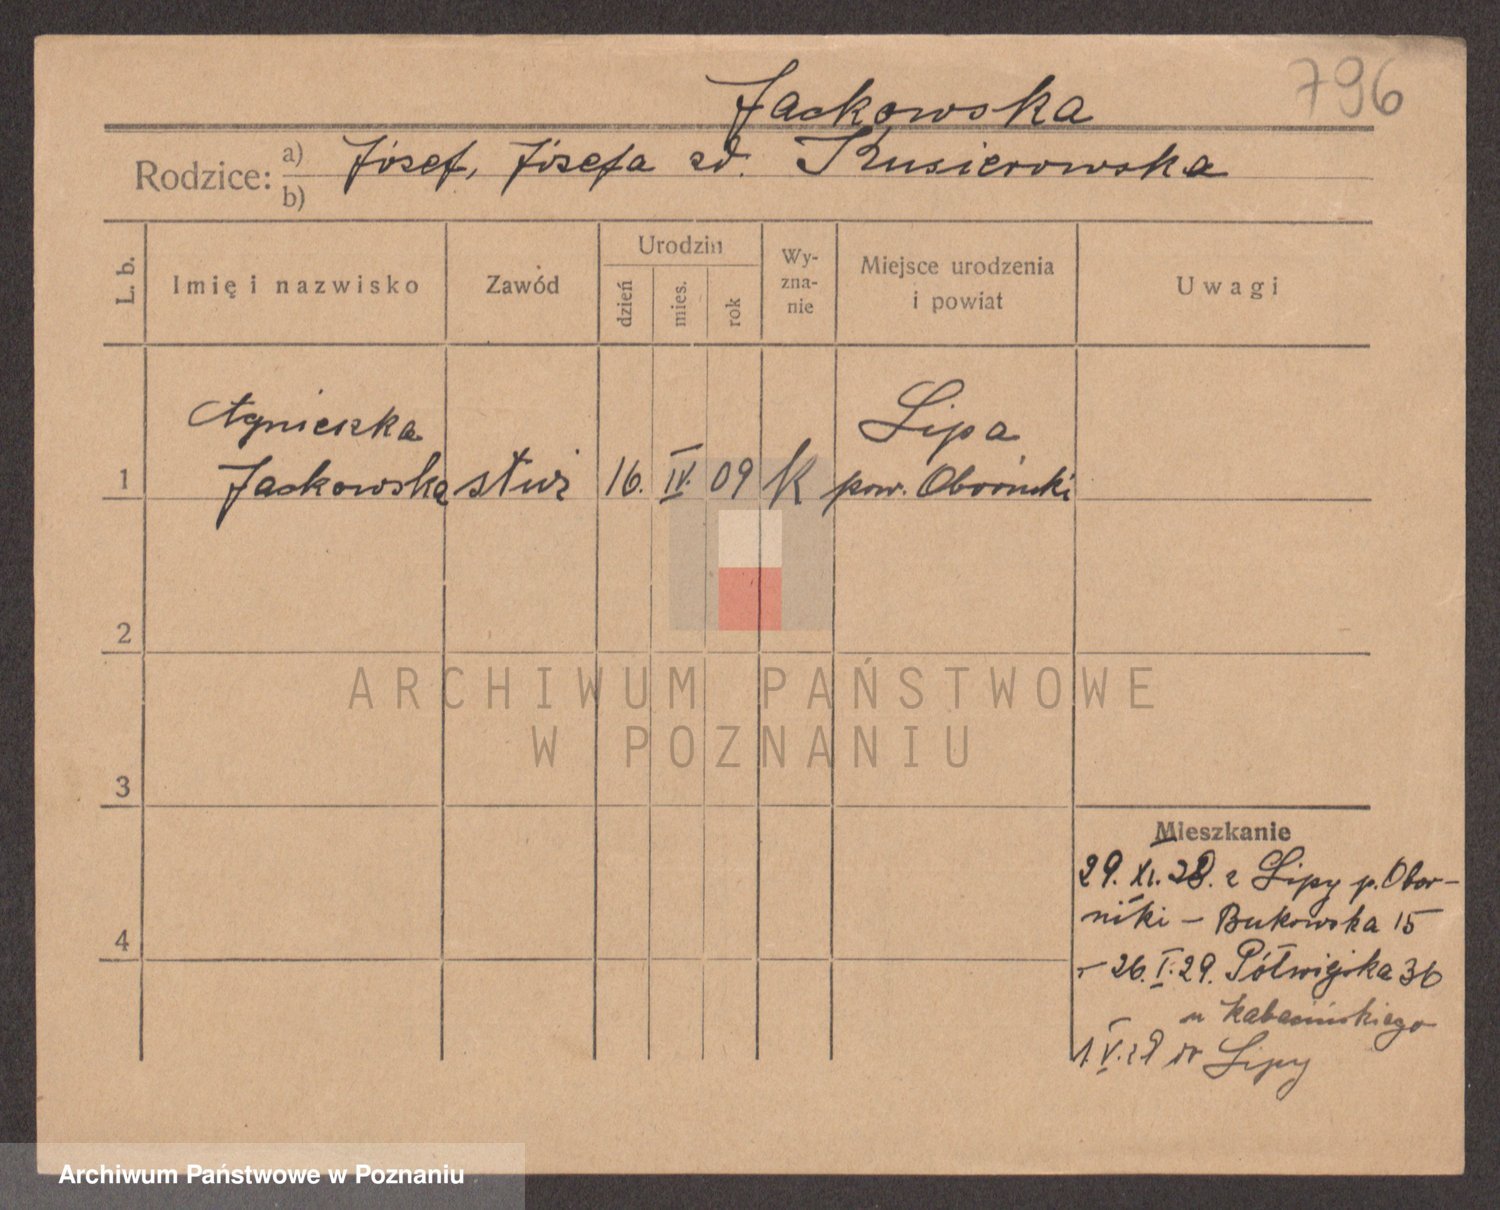 796
Jackowska
Rodzice: a) b) Józef, Józefa zd. Kusierowska
L. b. Imię i nazwisko Zawód Urodzin dzień mies. rok Wy-zna-nie Miejsce urodzenia i powiat Uwagi
Agnieszka Lipa
1 Jackowska służ 16. IV. 09 k pow. Obornicki
2
ARCHIWUM PAŃSTWOWE
W POZNANIU
3
Mieszkanie
29. XI. 28. z Lipy p. Obor-
niki – Bukowska 15
4
– 26. I. 29. Półwiejska 36
u
1. V. 29 do Lipy
Archiwum Państwowe w Poznaniu